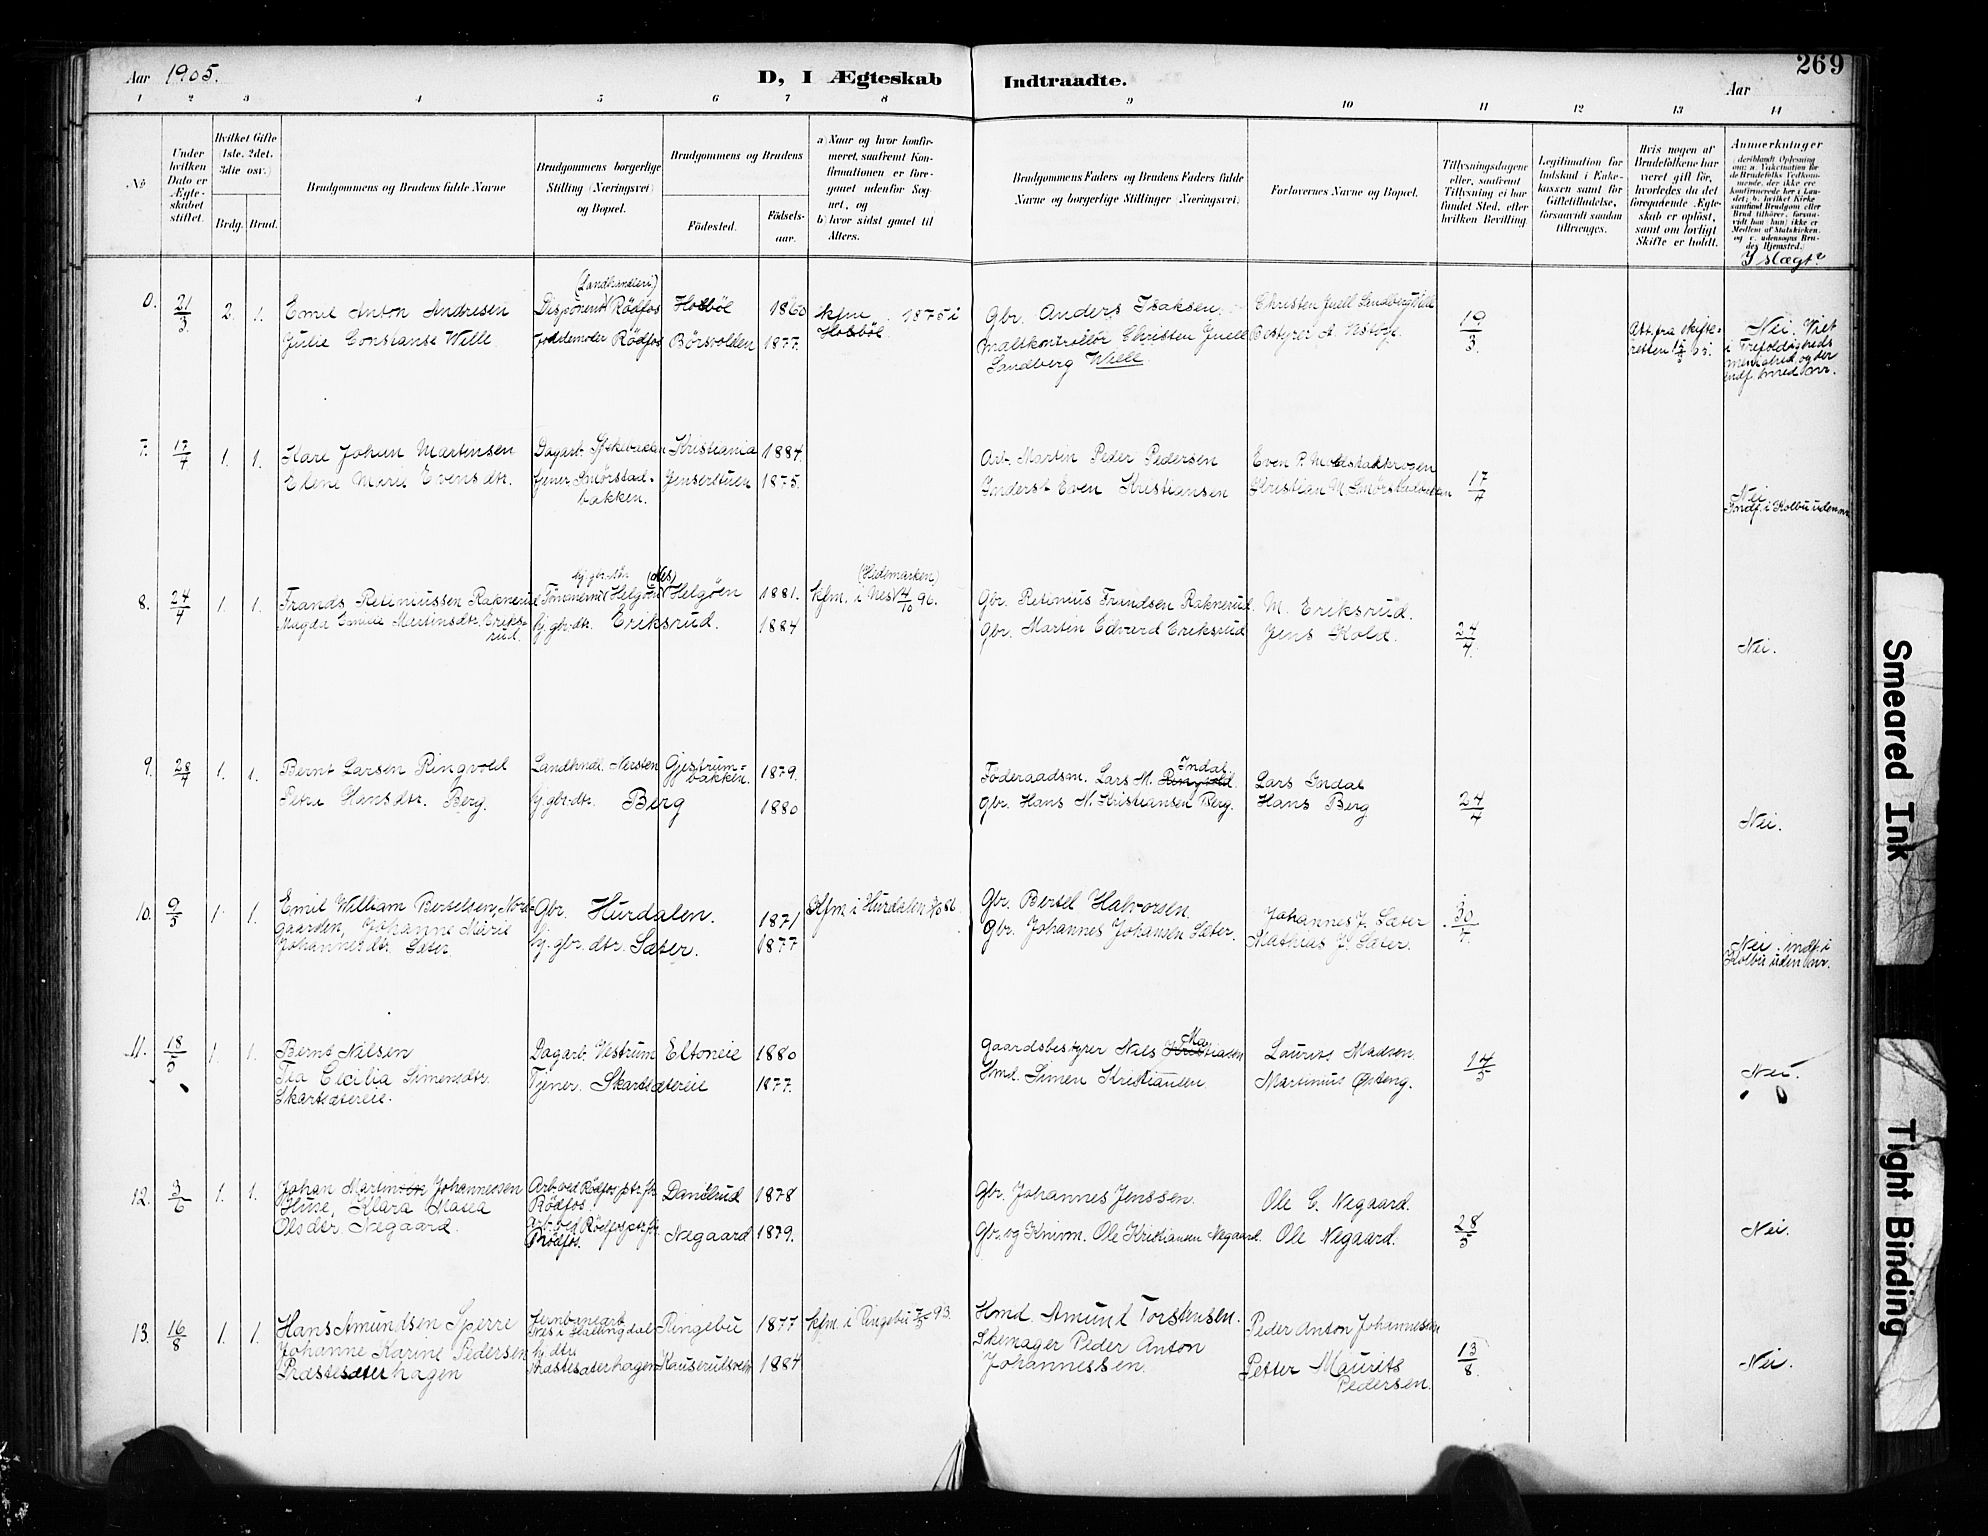 269
Aar 1905. D, I Ægteskab Indtraadte. Aar
1 2 3 4 5 6 7 8 9 10 11 12 13 14
No
Under hvilken Dato er Ægteskabet stiftet.
Hvilket Gifte (1ste, 2det, 3die osv.)
Brdg. Brud.
Brudgommens og Brudens fulde Navne
Brudgommens borgerlige Stilling (Næringsvei) og Bopæl.
Brudgommens og Brudens
Fødested. Fødselsaar.
a) Naar og hvor konfirmeret, saafremt Konfirmationen er foregaaet udenfor Sognet, og
b) hvor sidst gaaet til Alters.
Brudgommens Faders og Brudens Faders fulde Navne og borgerlige Stillinger (Næringsvei).
Forlovernes Navne og Bopæl.
Tillysningsdagene eller, saafremt Tillysning ei har fundet Sted, efter hvilken Bevilling.
Legitimation for Indskud i Enkekassen samt for Giftetilladelse, forsaavidt saadan tiltrænges.
Hvis nogen af Brudefolkene har været gift før, hvorledes da det foregaaende Ægteskab er opløst, samt om lovligt Skifte er holdt.
Anmerkninger
I slægt?
21/3 2. 1. Emil Anton Andresen
(Landhandleri)
Disponent Rödfos Holböl 1860 kfm. 1875 i Holböl
Gbr. Anders Isaksen. Christen Juell Sandberg Wille
Julie Constanse Wille Jordemoder Rödfos Börsvolden 1877.
Maltkontrollör Christen Juell Sandberg Wille.
Bestyrer A.
19/3.
Att. fra skifteretten
Nei. Viet i Trefoldigheds menighed og der indf. med nr.
7. 17/4 1. 1. Kare Johan Martinsen Dagarb. Kristiania 1884.
Arb. Martin Peder Pedersen Even P.
Elene Marie Evensdtr. Tjener Smørstadbakken. Jenserstuen 1875.
Inderst Even Kristiansen Kristian M. Smørstadbakken 17/4
Nei
Indf. i Kolbu uden nr.
8. 24/4 1. 1. Frands Retinius­sen Raknerud (Nes) Helgöen 1881. kfm. i Nes 4/10 96. (Hedemarken)
Gbr. Retinius Frandsen Raknerud. M. Eriksrud.
Magda Emilie Martinsdtr. Eriksrud. hj. gbr-dtr. Eriksrud. 1884
Gbr. Martin Edvard Eriksrud Jens Kold. 24/4. Nei.
9. 28/4 1. 1. Bernt Larsen Ringvold Landhndl. Nersten Gjestrumbakken. 1879.
Føderaadsm. Lars M. Ringvold. Indal Lars Indal
Petra Hansdtr. Berg. hj. gbr-dtr. Berg 1880
Gbr. Hans N. Kristiansen Berg. Hans Berg 24/4 Nei.
10. 9/5 1. 1. Emil William Bertelsen, Nordgaarden, Johanne Marie Johannesdtr. Sæter.
Gbr. Hurdalen. 1871 Kfm. i Hurdalen
hj. gbr. dtr. Sæter. 1877
Gbr. Bertel Halvorsen. Johannes J. Sæter
Gbr. Johannes Johansen Sæter. Mathias J. Sæter.
30/4.
Nei. indf. i Kolbu uden nr.
11. 18/5 1. 1. Bernt Nilsen Dagarb. Vestrum Eltoneie 1880
Gaardsbestyrer Nils Kristiansen Ma Laurits Madsen.
Cecilia Simensdtr. Skartsætereie. Tjener. Skartsætereie 1877.
Hmd. Simen Kristiansen. Martinus Østeng. 14/5 Nei.
12. 3/6 1. 1. Johan Martinsen Johannessen Huse, Klara Masea Olsdtr. Negaard.
Arb. ved Rödfos ptr.fbr. Rödfos. Danilrud 1878
Arb. ved Rödfos ptr.fbr. Rödfos. Negaard 1879.
Gbr. Johannes Jenssen. Ole C. Negaard.
Gbr. og Ole Kristiansen Negaard. Ole Negaard. 28/5 Nei.
13. 16/8 1. 1. Hans Amundsen Sperre
Jernbanearb. Nes i Hallingdal Ringebu 1877 kfm. i Ringebu 93.
Johanne Karine Pedersen Præstesæterhagen
hj. dtr. Præstesæterhagen 1884
Hmd. Amund Torstensen. Peder Anton Johannessen
Skomager Peder Anton Johannessen. Petter Maurits Pedersen. 13/8 Nei.
Smeared Ink
Tight Binding